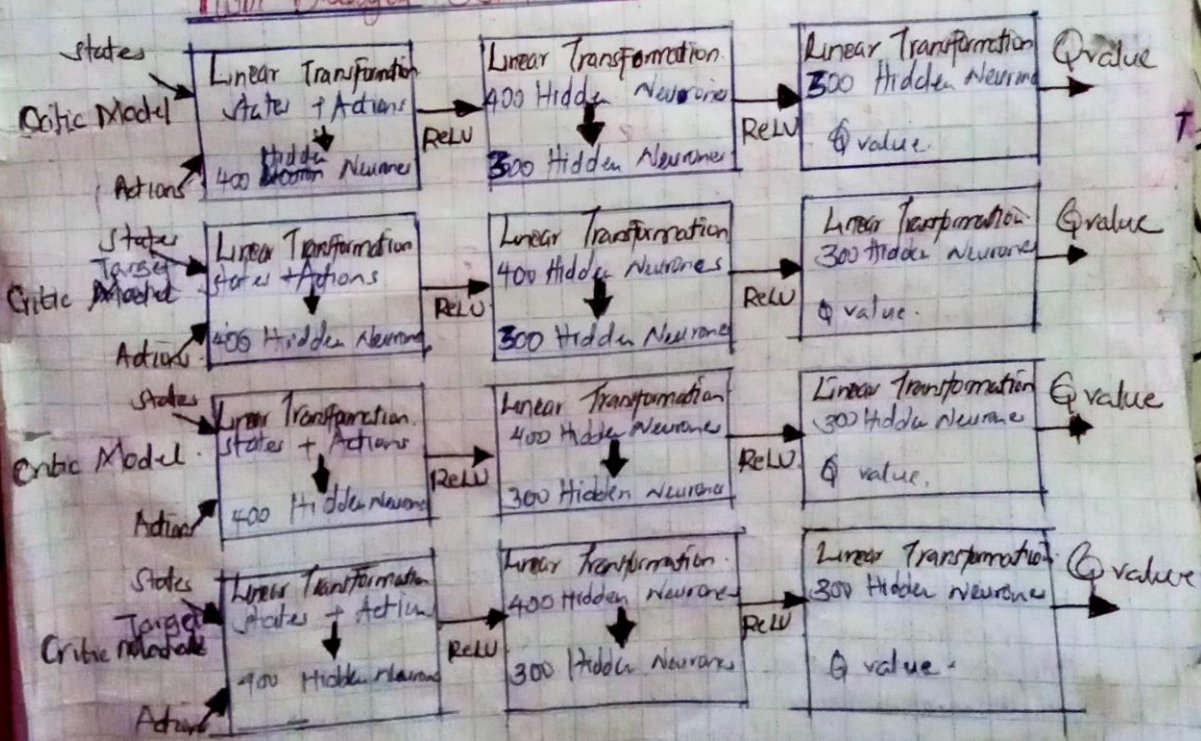 States
Critic Model
Actions
Linear Transformation
States + Actions
Hidden
400 Neurones
ReLU
Linear Transformation.
400 Hidden Neurones
300 Hidden Neurones
ReLU
Linear Transformation
300 Hidden Neurone
Q value.
Q value
States
Target
Critic Model
Actions
Linear Transformation
States + Actions
400 Hidden Neurone
ReLU
Linear Transformation
400 Hidden Neurones
300 Hidden Neurone
ReLU
Linear Transformation
300 Hidden Neurone
Q value.
Q value
States
Critic Model.
Actions
Linear Transformation.
States + Actions
400 Hidden Neurone
ReLU
Linear Transformation
400 Hidden Neurone
300 Hidden Neurone
ReLU
Linear Transformation
300 Hidden Neurone
Q value.
Q value
States
Target
Critic
Action
Linear Transformation
States + Action
400 Hidden Neurone
ReLU
Linear Transformation.
400 Hidden Neurone
300 Hidden Neurone
ReLU
Linear Transformation.
300 Hidden Neurone
Q value.
Q value